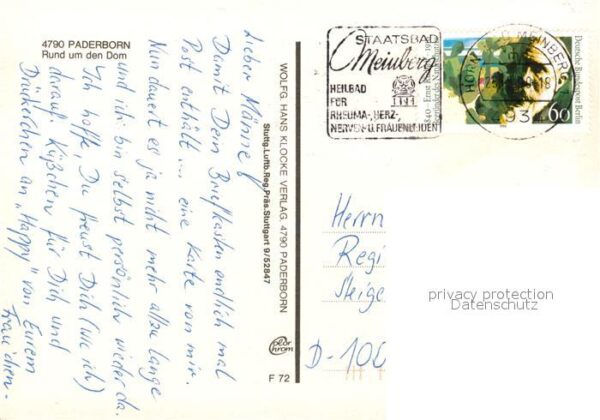 4790 PADERBORN
Rund um den Dom
Lieber Männe!
Damit Dein Briefkasten endlich mal
Post enthält... eine Karte von mir.
Nun dauert es ja nicht mehr allzu lange
und ich bin selbst persönlich wieder da.
Ich hoffe, Du freust Dich (wie ich)
darauf. Küßchen für Dich und
Drückerchen an "Happy" von Eurem
Frauchen.
WOLFG. HANS KLOCKE VERLAG, 4790 PADERBORN
Stuttg.Luftb.Reg.Präs.Stuttgart 9/52847
color
chrom
F 72
STAATSBAD
Meinberg
HEILBAD
FÜR
RHEUMA-, HERZ-,
NERVEN- U. FRAUENLEIDEN
HORN-BAD MEINBERG
93
Deutsche Bundespost Berlin
60
Herrn
Regi
Steige
D-100
privacy protection
Datenschutz